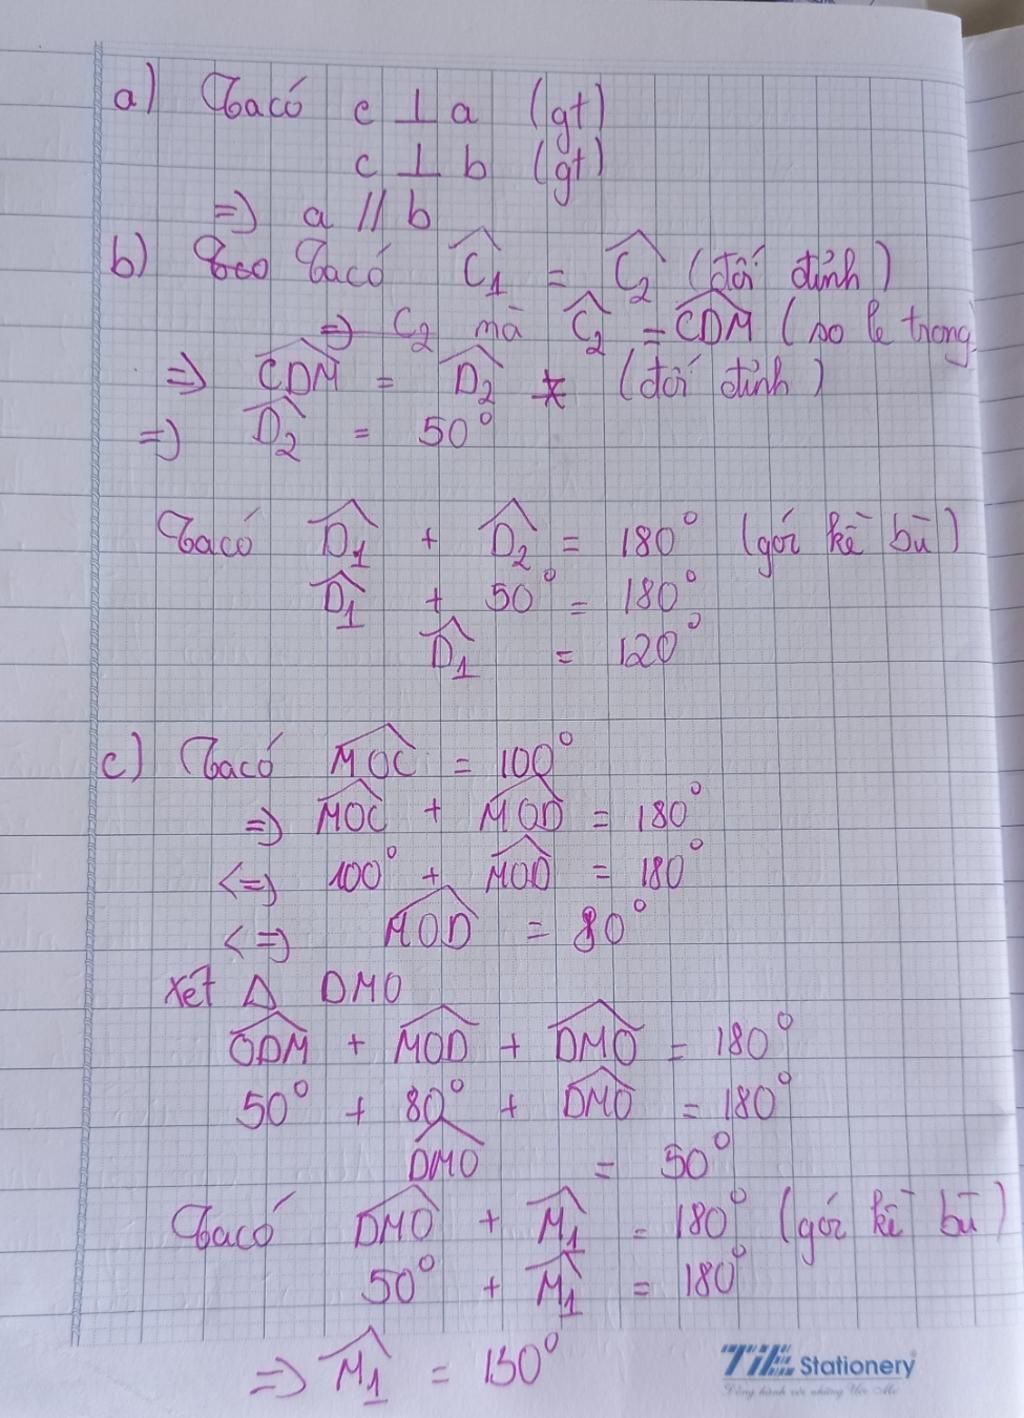 a) Ta có c ⊥ a (gt)
c ⊥ b (gt)
=> a // b
b) Ta có Ĉ1 = Ĉ2 (đối đỉnh)
=> C2 mà Ĉ2 = CDM (so le trong)
=> CDM = D̂2 (đối đỉnh)
=> D̂2 = 50°
Ta có D̂1 + D̂2 = 180° (góc kề bù)
D̂1 + 50° = 180°
D̂1 = 120°
c) Ta có MOC = 100°
=> MOC + MOD = 180°
<=> 100° + MOD = 180°
<=> MOD = 80°
Xét Δ DMO
ODM + MOD + DMO = 180°
50° + 80° + DMO = 180°
DMO = 50°
Ta có DMO + M̂1 = 180° (góc kề bù)
50° + M̂1 = 180°
=> M̂1 = 130°
TiE Stationery